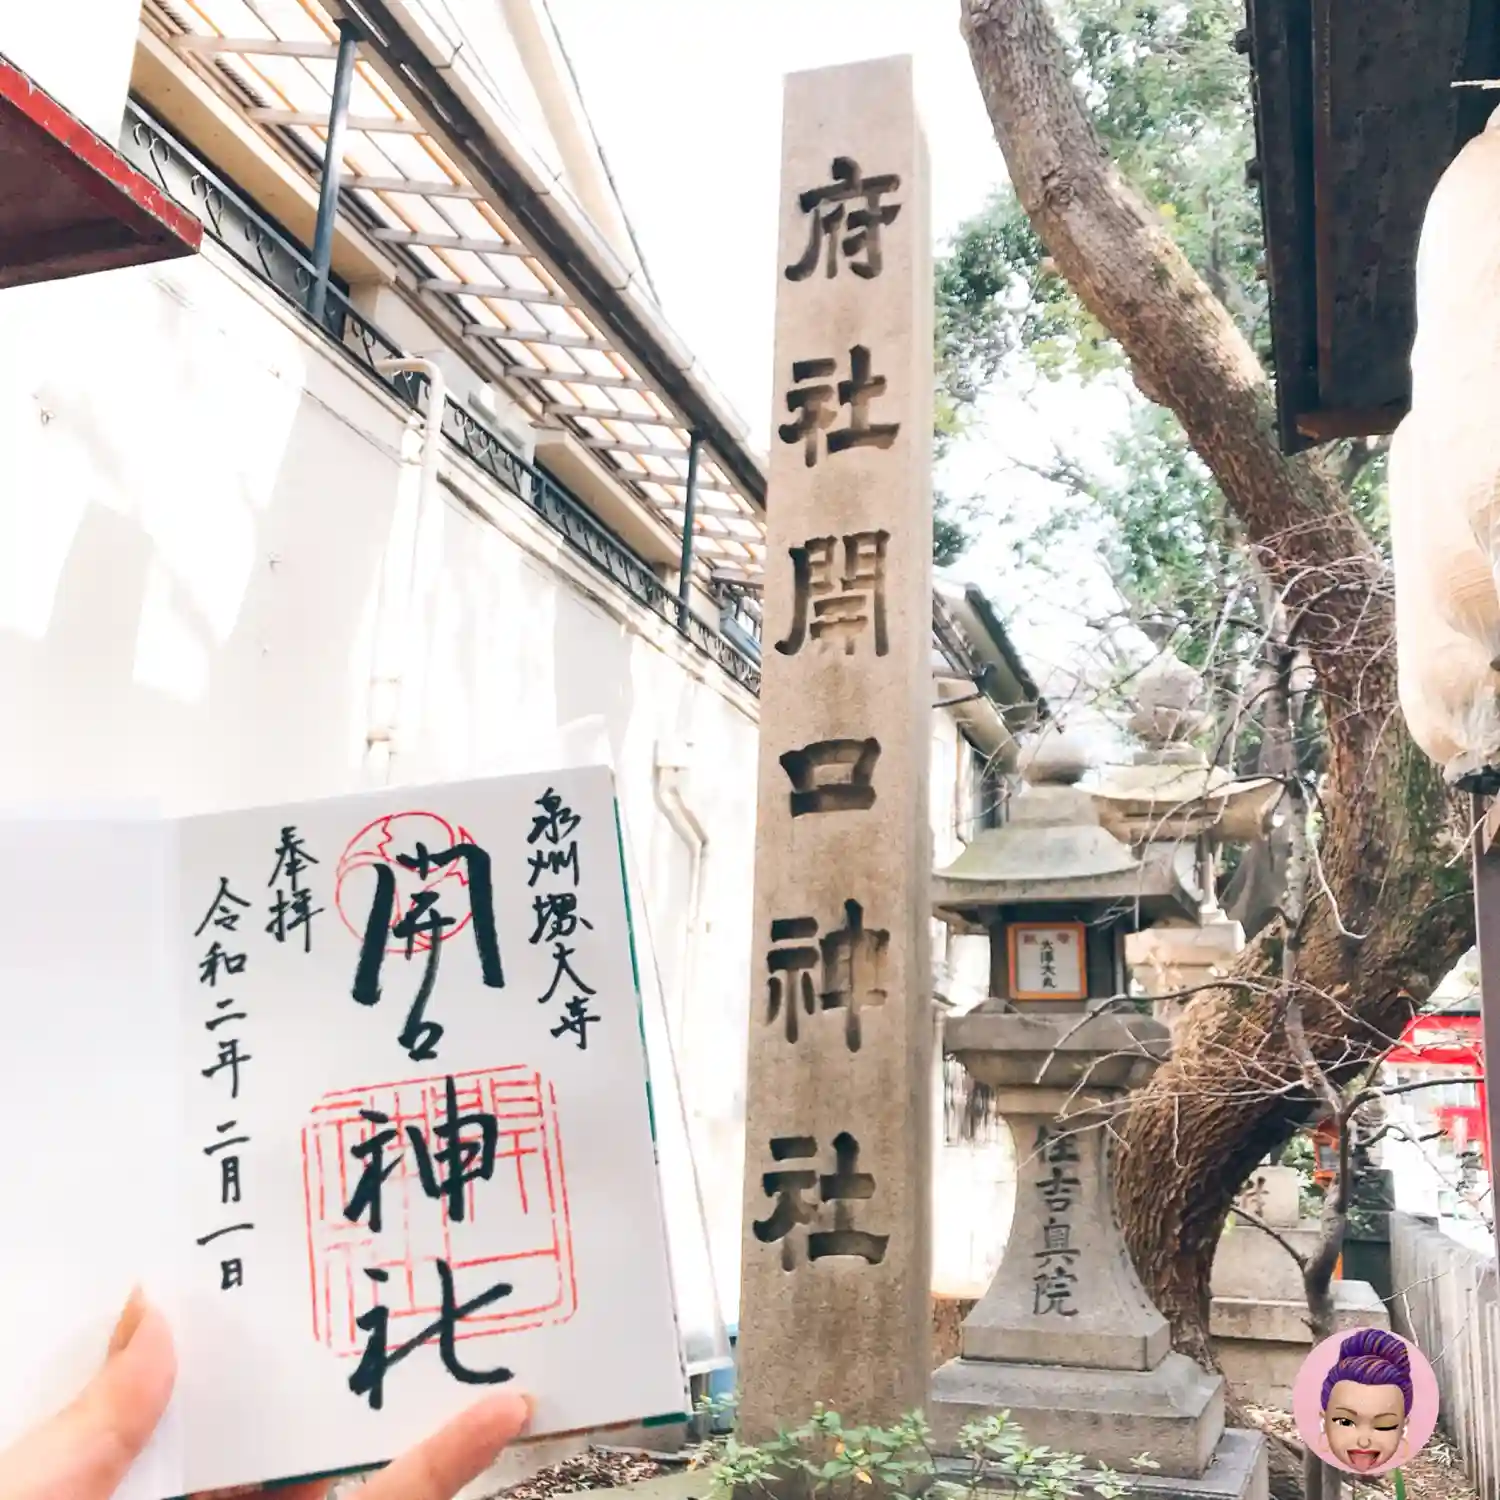 府社開口神社
泉州堺大寺
開口神社
奉拝
令和二年二月一日
住吉奥院